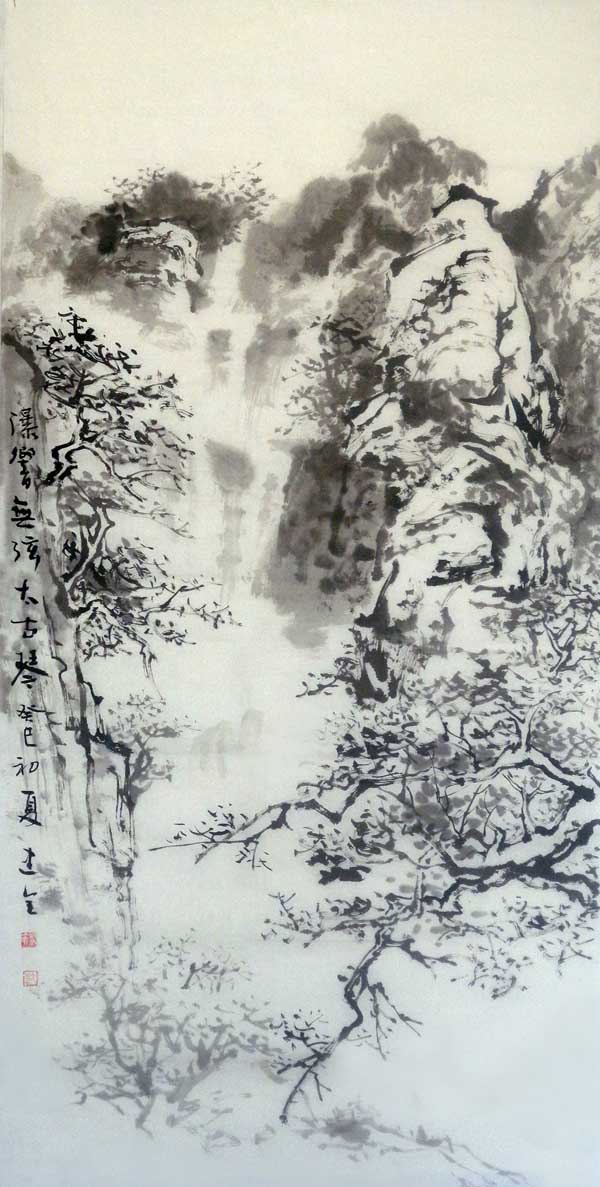 瀑響無弦太古琴癸巳初夏建全